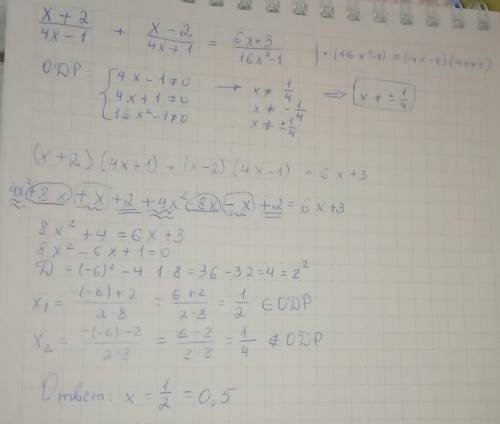 (x + 2)/(4x - 1) + (x - 2)/(4x + 1) = (6x + 3)/(16x² - 1) | · (16x² - 1) = (4x - 1)(4x + 1)
ODP { 4x - 1 ≠ 0 → x ≠ 1/4 ⇒ x ≠ ± 1/4
4x + 1 ≠ 0 x ≠ - 1/4
16x² - 1 ≠ 0 x ≠ ± 1/4
(x + 2)(4x + 1) + (x - 2)(4x - 1) = 6x + 3
4x² + 8x + x + 2 + 4x² - 8x - x + 2 = 6x + 3
8x² + 4 = 6x + 3
8x² - 6x + 1 = 0
D = (-6)² - 4 · 1 · 8 = 36 - 32 = 4 = 2²
x₁ = (-(-6) + 2)/(2·8) = (6 + 2)/(2·8) = 1/2 ∈ ODP
x₂ = (-(-6) - 2)/(2·8) = (6 - 2)/(2·8) = 1/4 ∉ ODP
Ответ: x = 1/2 = 0,5